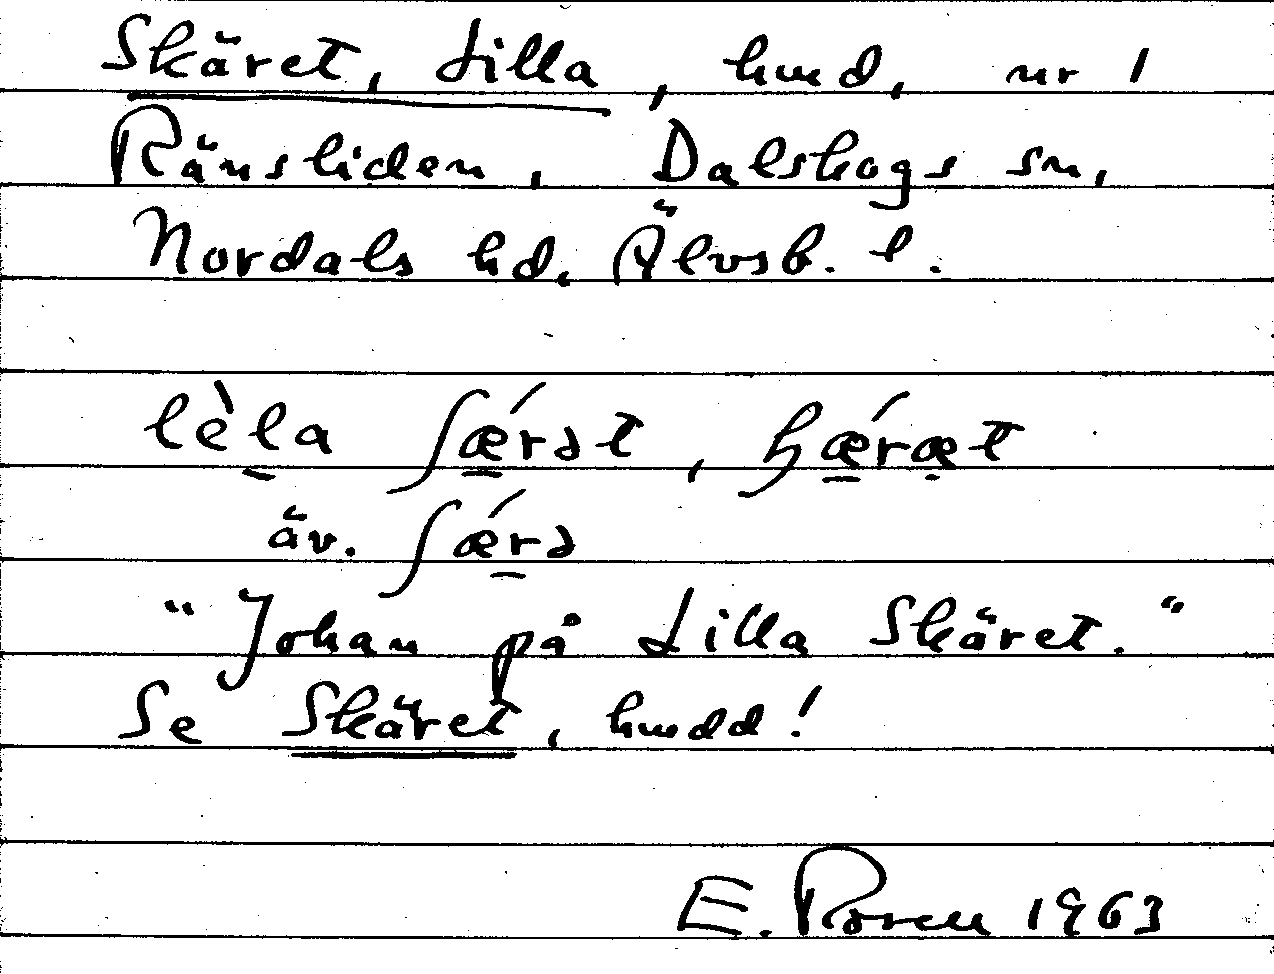 Skäret, Lilla, hmd, nr 1
Ränsliden, Dalskogs sn,
Nordals hd. Älvsb. l.
lèla ʃǽrət, ꜧǽræt
äv. ʃǽrə
"Johan på Lilla Skäret."
Se Skäret, hmdd!
E. Rosell 1963